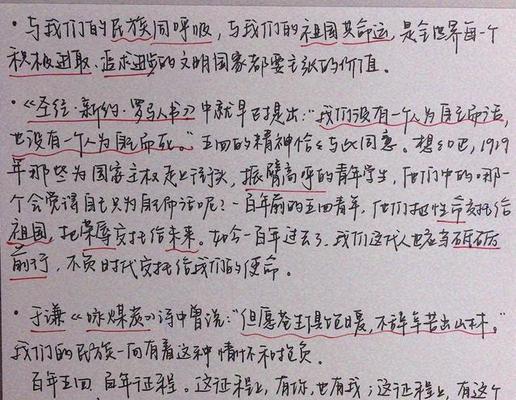 ·与我们的民族同呼吸,与我们的祖国共命运,是全世界每一个
积极进取、追求进步的文明国家都要主张的价值。
·《圣经·新约·罗马人书》中就早已提出:“我们没有一个人为自己而活,
也没有一个人为自己而死。”五四的精神信念与此同意。想1919
年那些为国家主权走上街头,振臂高呼的青年学生,他们中的哪一
个会觉得自己只为自己而活呢?一百年前的五四青年,他们把性命交托给
祖国,把荣辱交托给未来。如今一百年过去了,我们这代人也应当砥砺
前行,不负时代交托给我们的使命。
·于谦《咏煤炭》诗中曾说:“但愿苍生俱饱暖,不辞辛苦出山林。”
我们的民族一向有着这种情怀和抱负。
百年五四,百年征程。这征程上,有你,也有我;这征程上,有这个